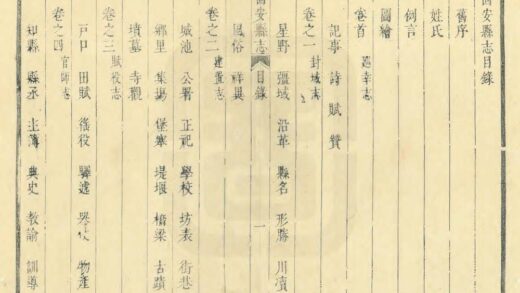 安縣志目錄
舊序
姓氏
例言
圖繪
卷首 巡幸志
記事 詩 賦 贊
卷之一 封域志
星野 疆域 沿革 縣名 形勝 川瀆
安縣志 目錄 一
風俗 祥異
卷之二 建置志
城池 公署 正祀 學校 坊表 街巷
鄉里 集場 堡寨 堤堰 橋梁 古蹟
墳墓 寺觀
卷之三 賦役志
戶口 田賦 徭役 驛遞 物產
卷之四 官師志
知縣 縣丞 主簿 典史 教諭 訓導